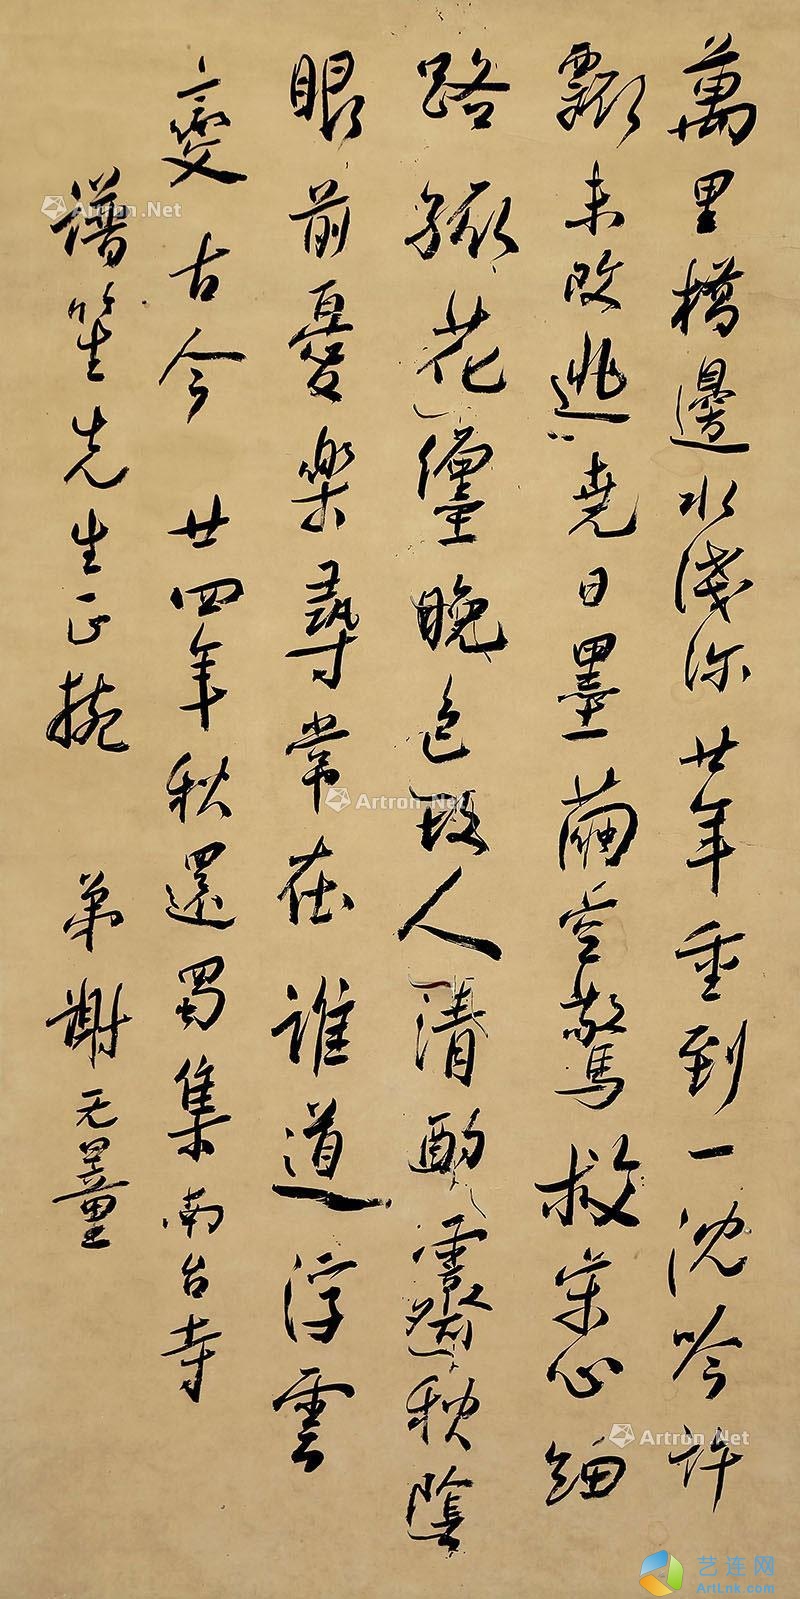 萬里橋邊水淺深廿年重到一沈吟許
瓢未改逃堯日墨繭空驚救宋心細
路孤花纏晚色故人清酌秋陰
眼前憂樂尋常在誰道浮雲
變古今 廿四年秋還蜀集南台寺
譜笙先生正捥 弟謝无量
Artron.Net
Artron.Net
Artron.Net
艺连网
ArtLnk.com